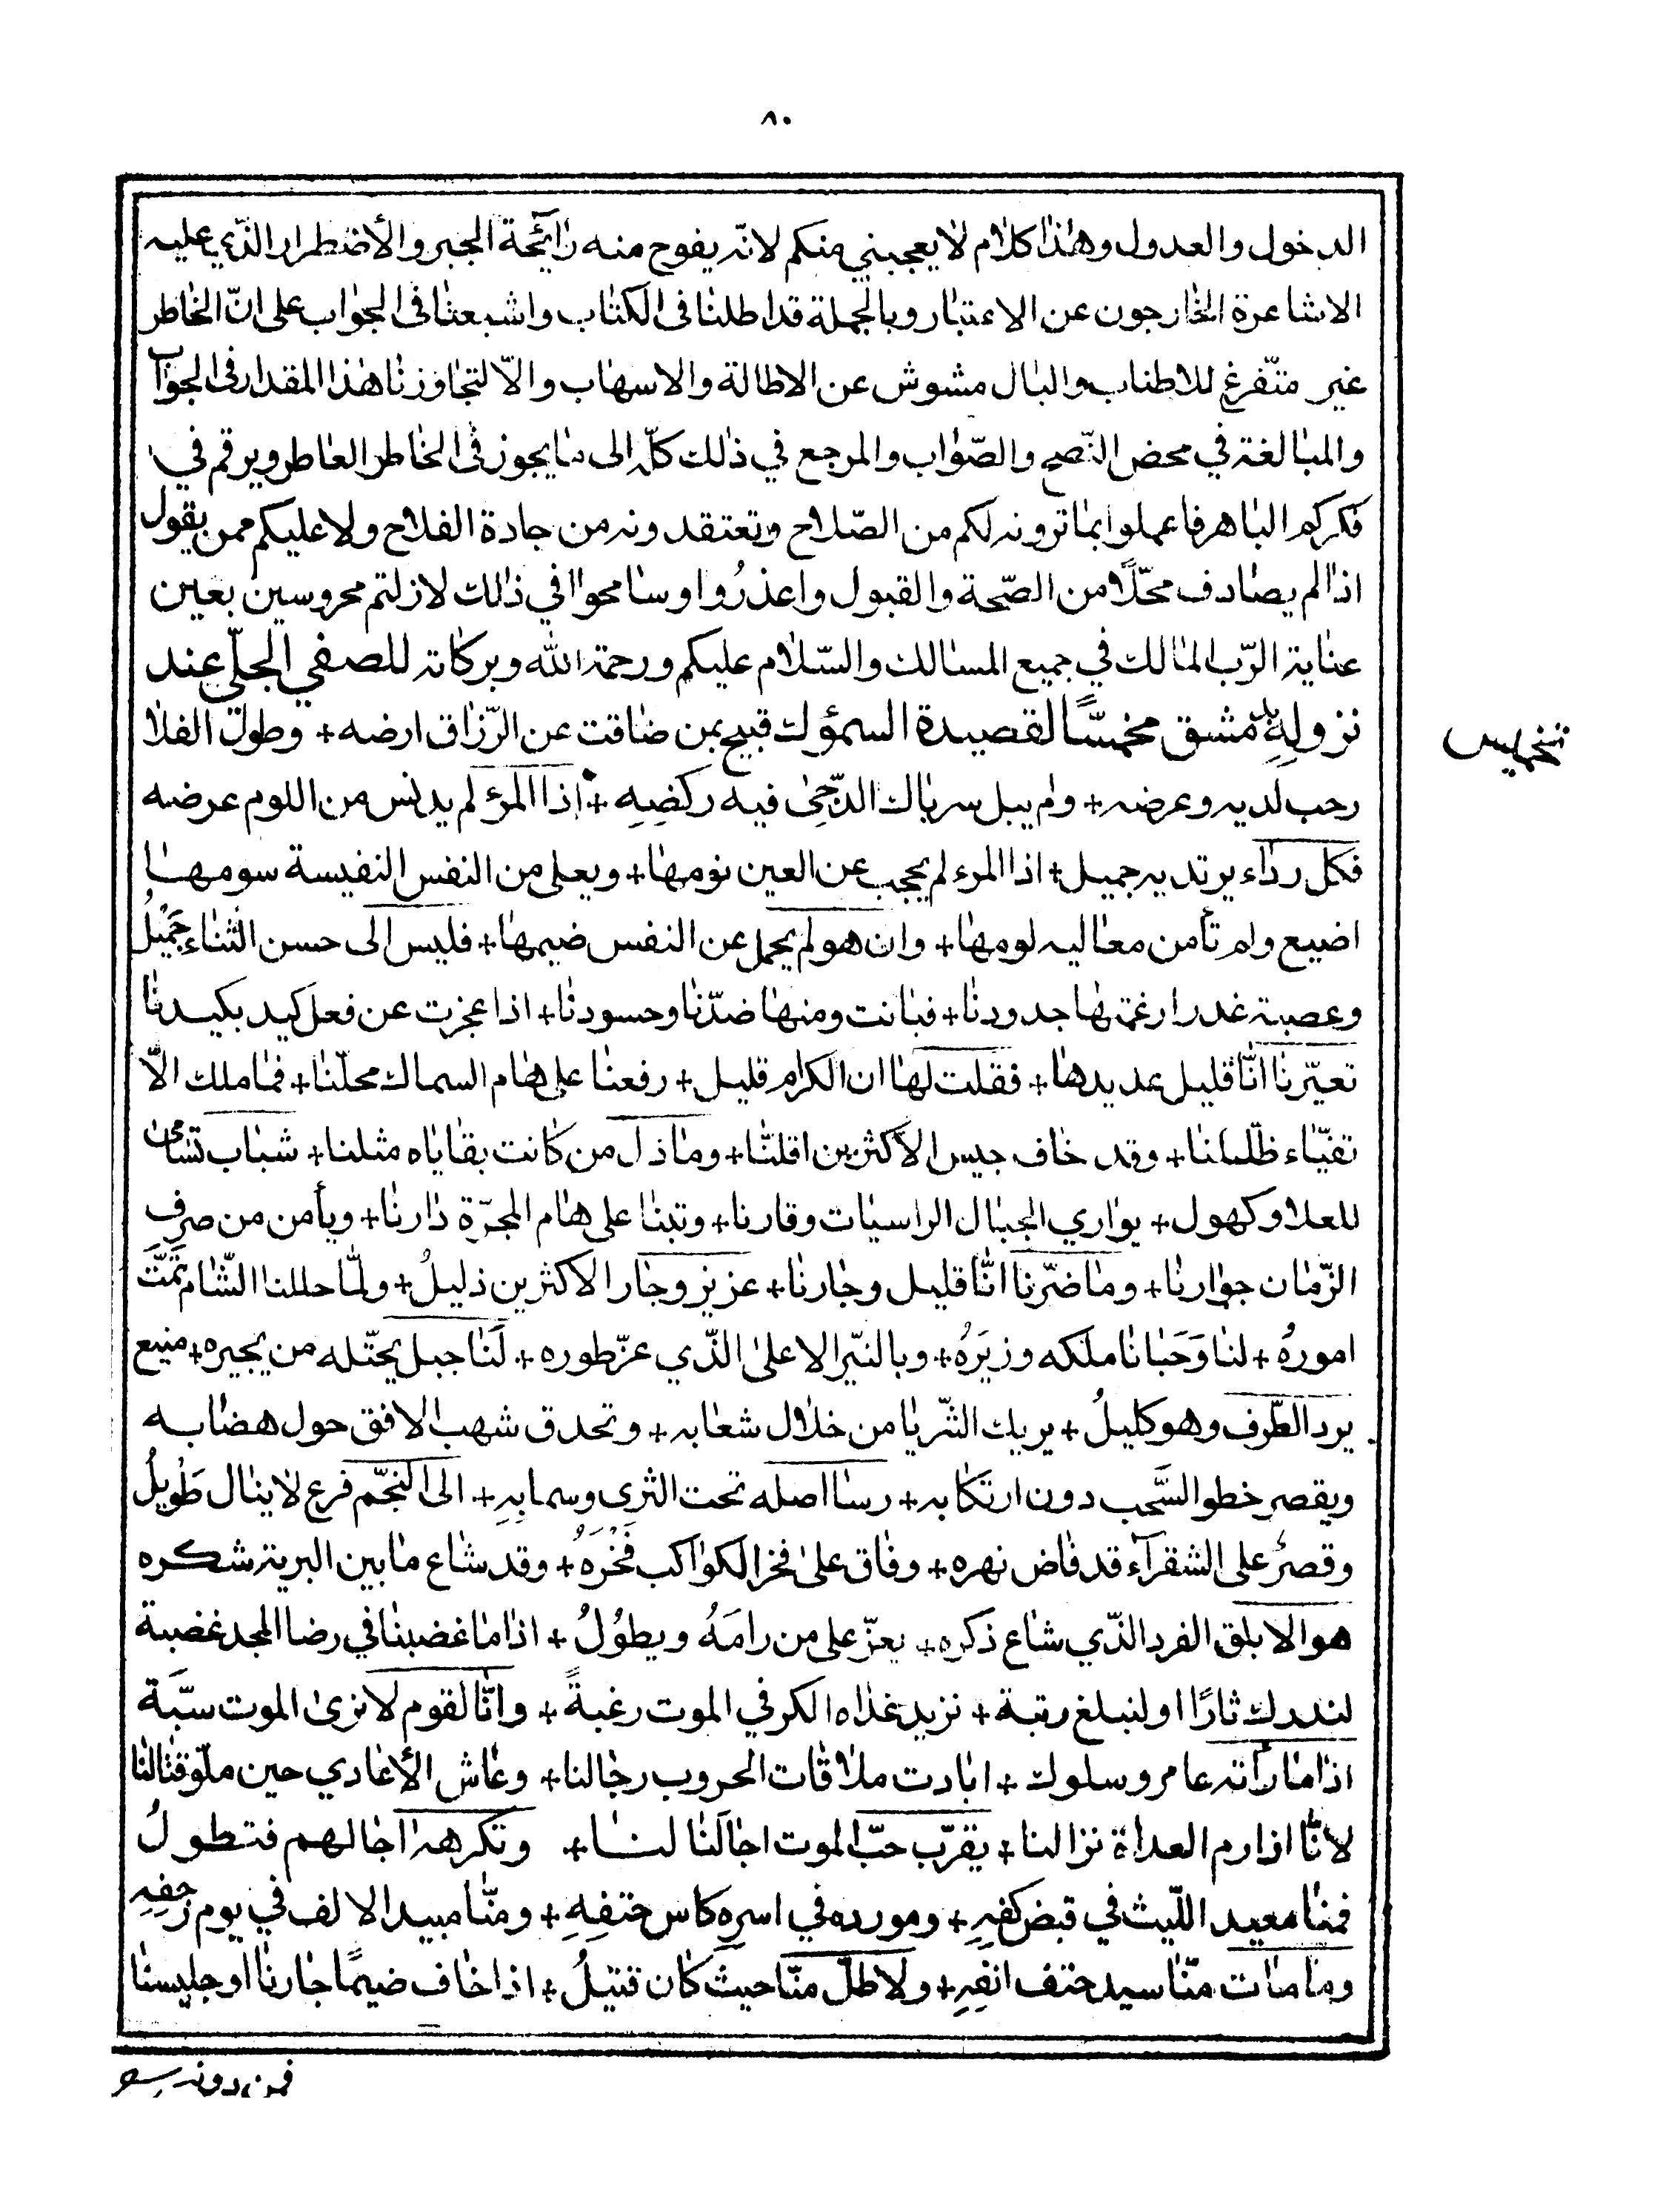 ٨٠
الدخول والعدول وهٰذا كلٰام لٰا يعجبني منكم لانّه يفوح منه رٰائحة الجبر والأضطرار الذّي عليه
الاشاعرة الخٰارجون عن الاعتبٰار وبالجملة قد اطلنٰا فى الكتٰاب واشبعنٰا فى الجوٰاب على انّ الخٰاطر
غير متّفرغ للاطناب والبٰال مشوش عن الاطالة والاسهٰاب والّا لتجٰاوزنٰا هٰذا المقدار فى الجوٰاب
والمبٰالغة في محض النّصح والصّوٰاب والمرجع في ذٰلك كلّه الى مٰا يجوز فى الخٰاطر العٰاطر ويرقم في
فكركم البٰاهر فاعملوا بمٰا ترونه لكم من الصّلاح وتعتقدونه من جادة الفلاح ولا عليكم ممن يقول
اذا لم يصٰادف محلًّا من الصّحة والقبول واعذرُوا وسٰامحوا في ذٰلك لازلتم محروسين بعين
عنٰاية الرّب المٰالك في جميع المسٰالك والسّلٰام عليكم ورحمة الله وبركٰاته للصفي الجلّي عند
نزولهِ بدمشق مخمسًّا لقصيدة السمؤل قبيح بمن ضٰاقت عن الرّزٰاق ارضه + وطول الفلٰا
تخميس
رحب لديه وعرضه + ولم يبل سربٰال الدّجىٰ فيه ركضهِ + اذا المرء لم يدنس من اللوم عرضه
فكل ردٰاء يرتديه جميل + اذا المرء لم يحجب عن العين نومهٰا + ويعلي من النفس النفيسة سومهٰا
اضيع ولم تأمن معٰاليه لومهٰا + وان هو لم يحمل عن النفس ضيمهٰا + فليس الى حسن الثنٰاء جَمْيلُ
وعصبة غدر ارغمتهٰا جدودنٰا + فبٰانت ومنهٰا ضدّنٰا وحسودنٰا + اذا عجزت عن فعل كيد بكيدنٰا
تعيّرنٰا انّٰا قليل عديدهٰا + فقلت لهٰا ان الكرام قليل + رفعنٰا على هٰام السماك محلّنٰا + فمٰا ملك الّا
تفيّٰاء ظلّٰنا + وقد خٰاف جيس الأكثرين اقلنّٰا + ومٰا ذل من كٰانت بقٰايٰاه مثلنا + شبٰاب تسٰامىٰ
للعلا وكهول + يوٰاري الجبٰال الراسيٰات وقارنا + وتبنٰا على هٰام المجرّة دٰارنٰا + ويأمن من صرف
الزّمٰان جوٰارنٰا + ومٰا ضرّنا انّٰا قليل وجٰارنٰا + عزيز وجٰار الاكثرين ذليلُ + ولمّٰا حللنا الشّٰام تَمَّتَ
امورهُ + لنٰا وَحَبٰانٰا ملكه وزيَرَهُ + وبالنيّر الاعلىٰ الذّي عزّ طوره + لَنٰا جبل يحتّله من يجيره + منيع
يرد الطّرف وهو كليلُ + يريك الثّريٰا من خلٰال شعٰابه + وتحدق شهب الافق حول هضٰابه
ويقصر خطو السَّحب دون ارتكٰابه + رسٰا اصله تحت الثرى وسمابهِ + الى النّجّم فرع لٰا ينٰال طَوْيلُ
وقصرٌ على الشقرآء قد فٰاض نهره + وفٰاق علىٰ فخر الكوٰاكب فَخْرَهُ + وقد شٰاع مٰا بين البرية شكره
هو الابلق الفرد الذّي شٰاع ذكره + يعزّ على من رامَهُ ويطوُلُ + اذٰا مٰا غضبنٰا في رضا المجد غضبة
لندرك ثارًا او لنبلغ رتبة + نزيد غذٰاه الكر في الموت رغبةً + وانّٰا لقوم لا نرىٰ الموت سبّة
اذٰا مٰا رأته عامر وسلول + ابٰادت ملاقٰات الحروب رجٰالنا + وعٰاش الأعٰادي حين ملّو قتٰالنٰا
لانّٰا اذا رم العدٰاة نزالنا + يقرّب حبّ الموت اجٰالَنٰا لنٰا + وتكرهه اجٰالهم فتطولُ
فمنٰا معيد اللّيث في قبض كفهِ + ومورده في اسرهِ كاس حتفهِ + ومنّٰا مبيد الالف في يوم زحفهِ
ومٰا مٰات منّٰا سيد حتف انفهِ + ولا طلّ منّٰا حيث كٰان قتيلُ + اذا خٰاف ضيمًا جٰارنٰا او جليسنٰا
فمن دونه